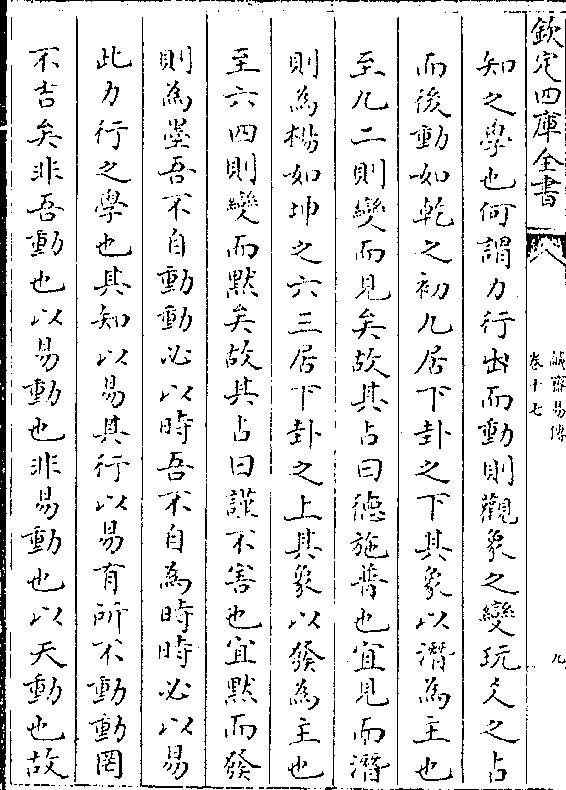 欽定四庫全書
誠齋易傳
卷十七
九
知之學也何謂力行出而動則觀象之變玩爻之占
而後動如乾之初九居下卦之下其象以潛為主也
至九二則變而見矣故其占曰德施普也宜見而潛
則為楊如坤之六三居下卦之上其象以發為主也
至六四則變而黙矣故其占曰謹不害也宜黙而發
則為墨吾不自動動必以時吾不自為時時必以易
此力行之學也其知以易其行以易有所不動動罔
不吉矣非吾動也以易動也非易動也以天動也故